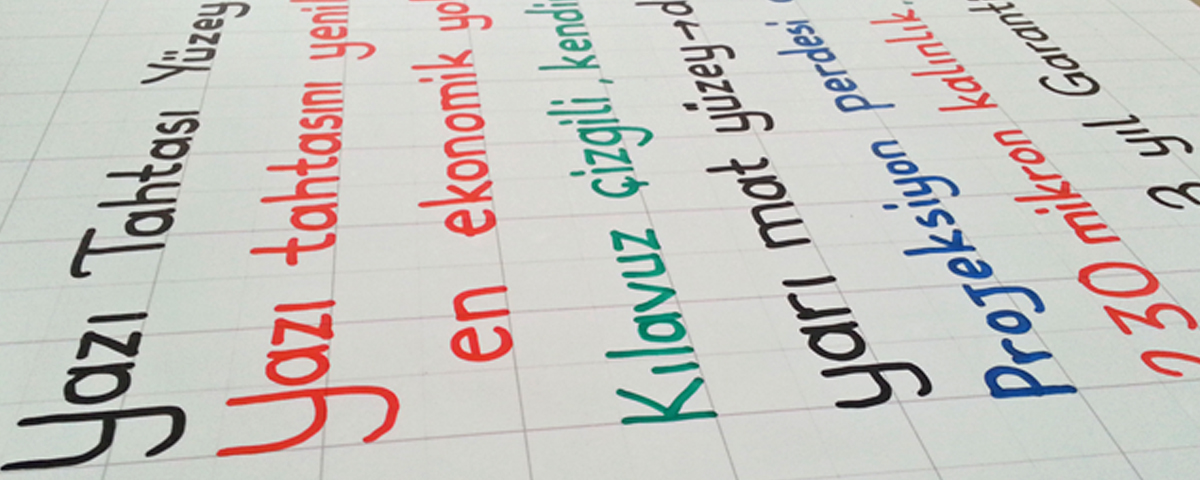 Yazı Tahtası Yüzey
Yazı tahtasını yenil
en ekonomik yol
Kılavuz çizgili, kendi
yarı mat yüzey→d
Projeksiyon perdesi
230 mikron kalınlık.
3 yıl Garanti